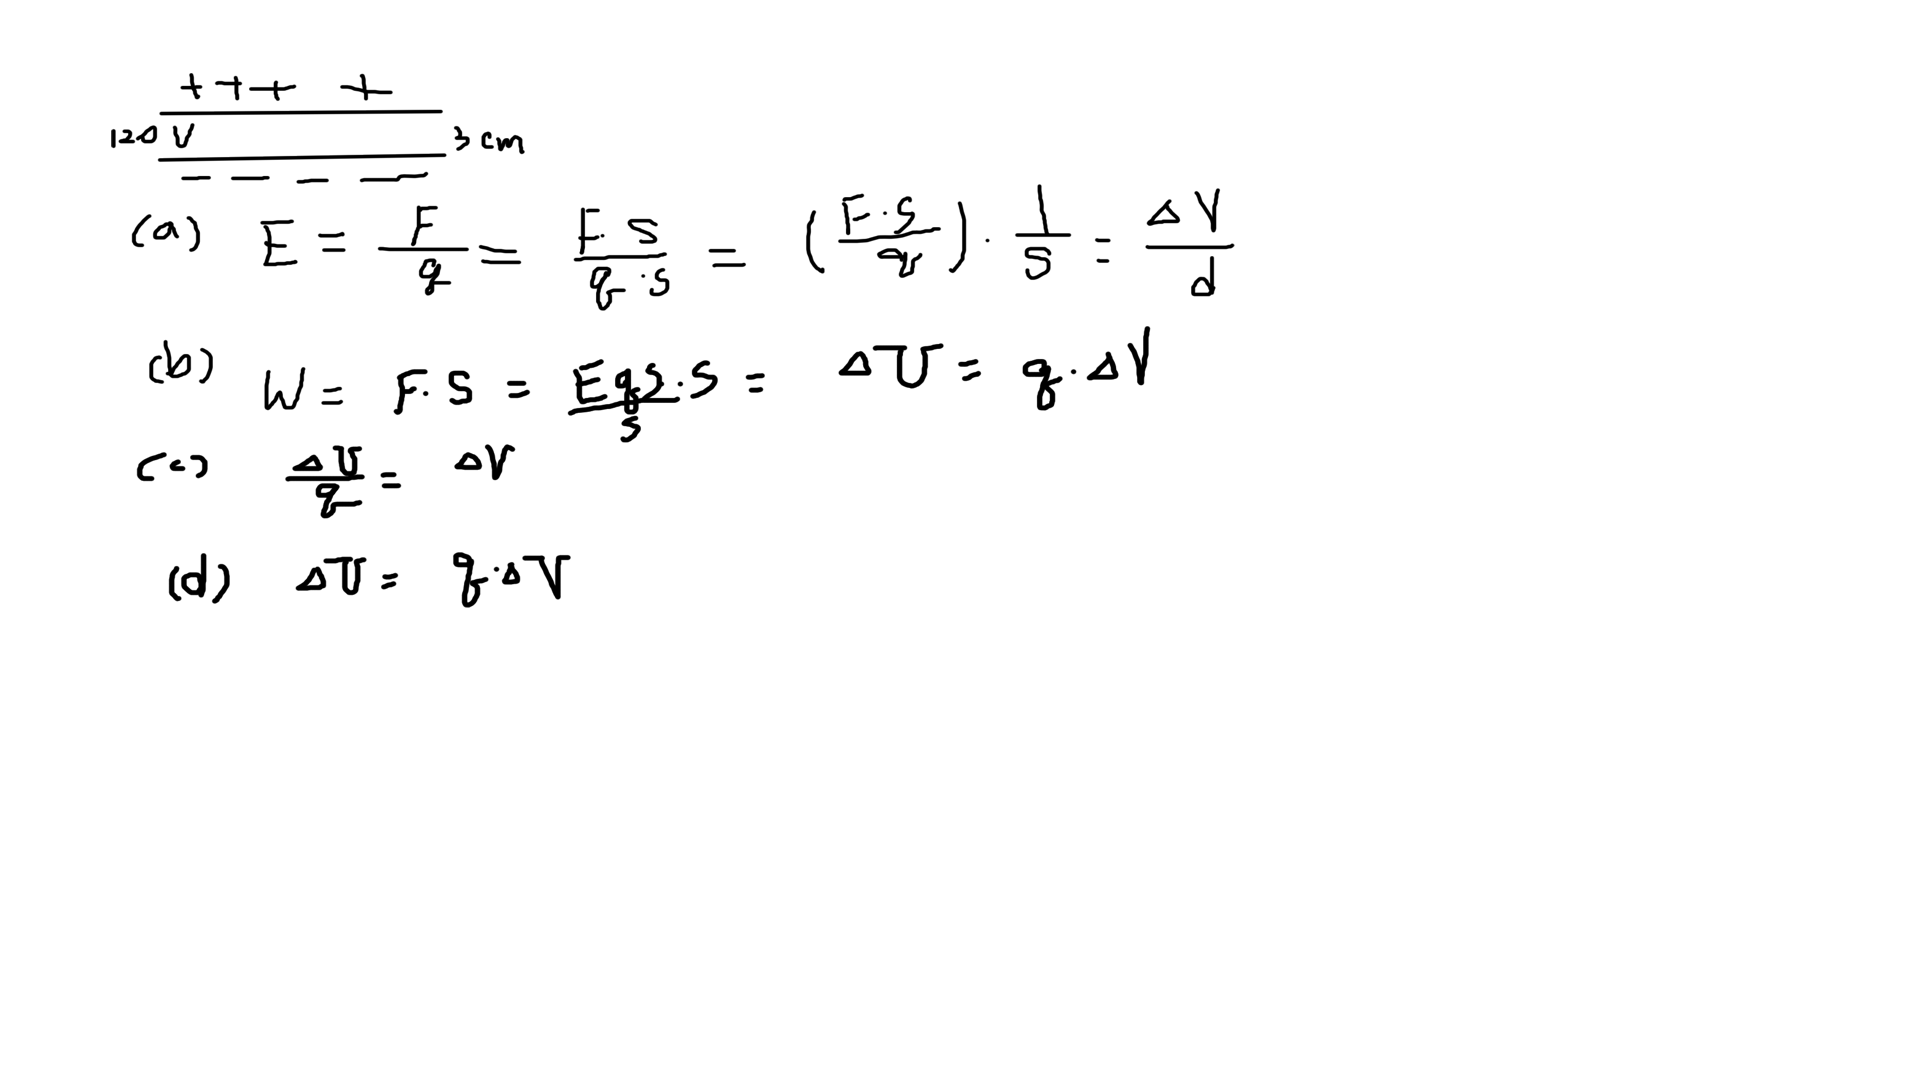 + + + +
120 V 3 cm
− − − −
(a) E = F/q = F·S/q·s = (F·s/q)·1/s = ΔV/d
(b) W = F·S = Eqs/s·S = ΔU = q·ΔV
(c) ΔU/q = ΔV
(d) ΔU = q·ΔV